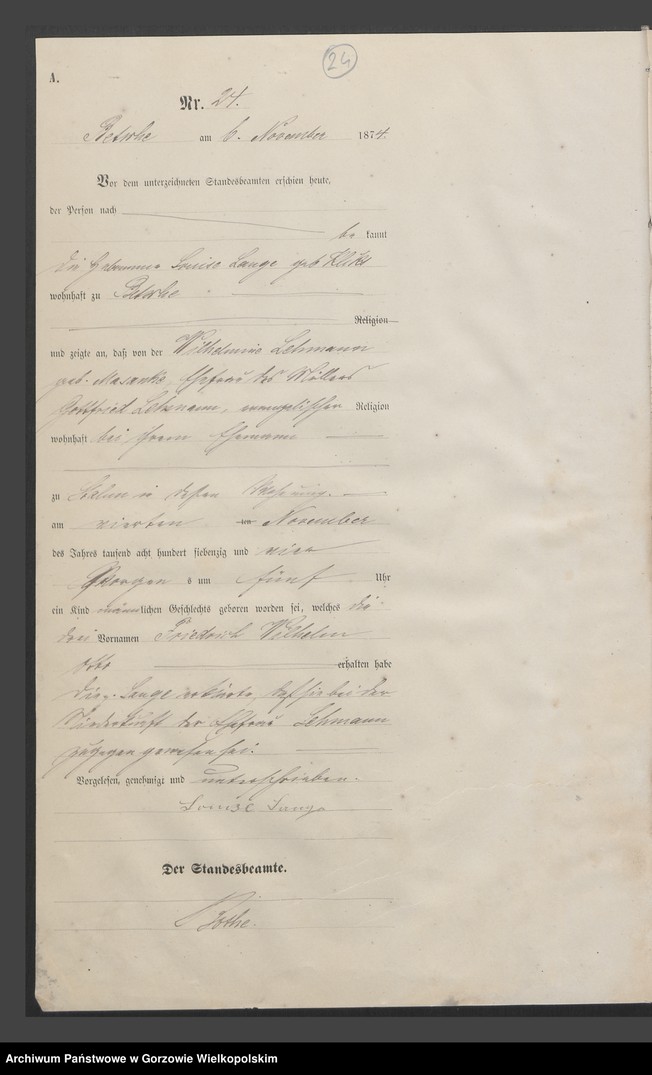 24
A.
Nr. 24.
Betsche am 6. November 1874.
Vor dem unterzeichneten Standesbeamten erschien heute,
der Person nach
be kannt
die Hebamme Louise Lange geb.
wohnhaft zu Betsche
Religion
und zeigte an, daß von der Wilhelmine Lehmann
geb. Masanke, Ehefrau des Müllers
Gottfried Lehmann, evangelischer Religion
wohnhaft bei ihrem Ehemann
zu in dessen Wohnung.
am vierten ten November
des Jahres tausend acht hundert siebenzig und vier
Morgen s um fünf Uhr
ein Kind männlichen Geschlechts geboren worden sei, welches die
drei Vornamen Friedrich Wilhelm
Otto erhalten habe
Die p. Lange erklärte, daß sie bei der
Niederkunft der Ehefrau Lehmann
zugegen gewesen sei.
Vorgelesen, genehmigt und unterschrieben.
Louise Lange
Der Standesbeamte.
Archiwum Państwowe w Gorzowie Wielkopolskim